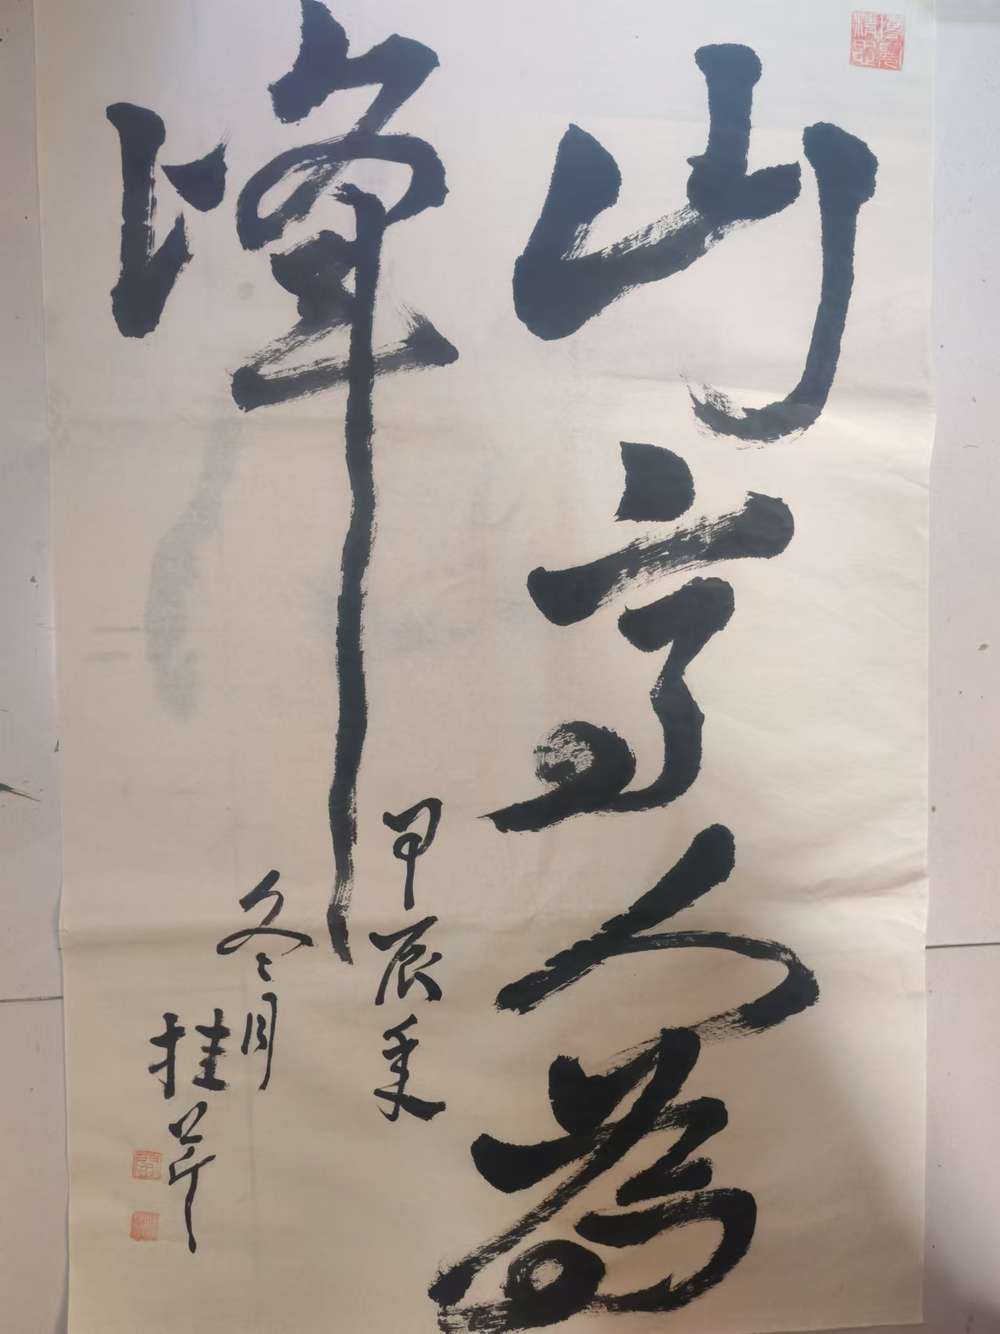 山高人为
峰
甲辰年
冬月
桂芹